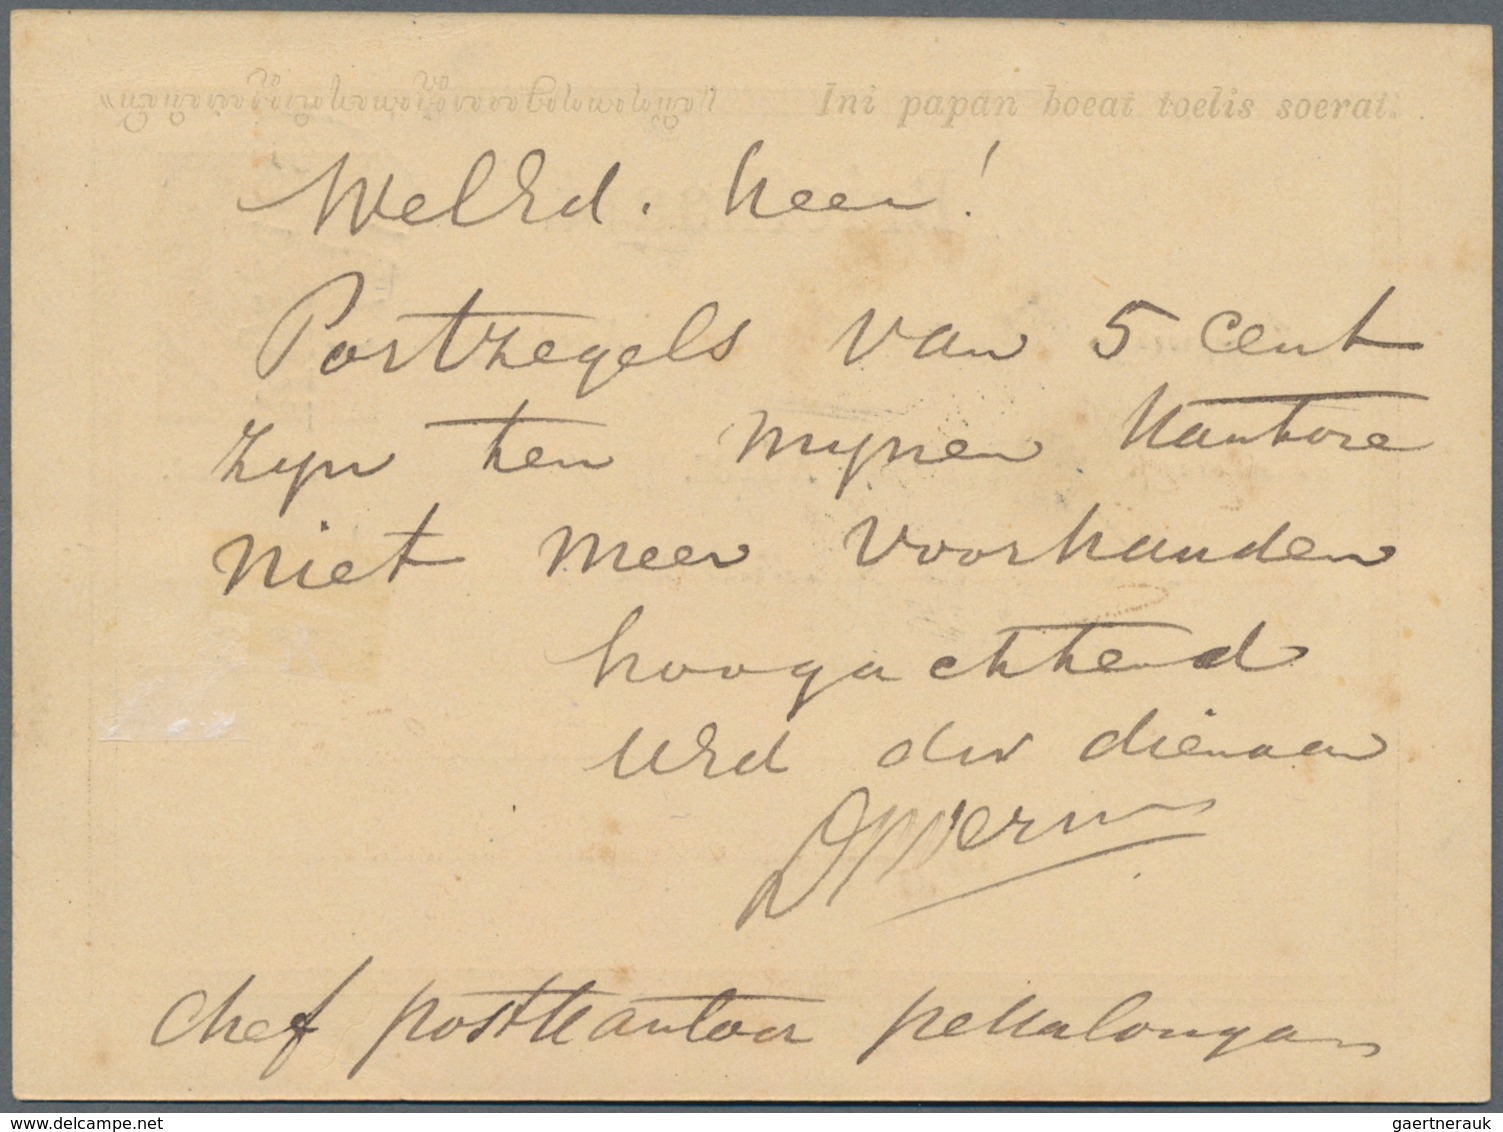 Ini papan boeat toelis soerat.
WelEd. heer!
Postzegels van 5 cent
zyn ten mynen kantore
niet meer voorhanden
hoogachtend
UEd dw dienaar
chef postkantoor pekalongan
gaertnerauk @ delcampe.net